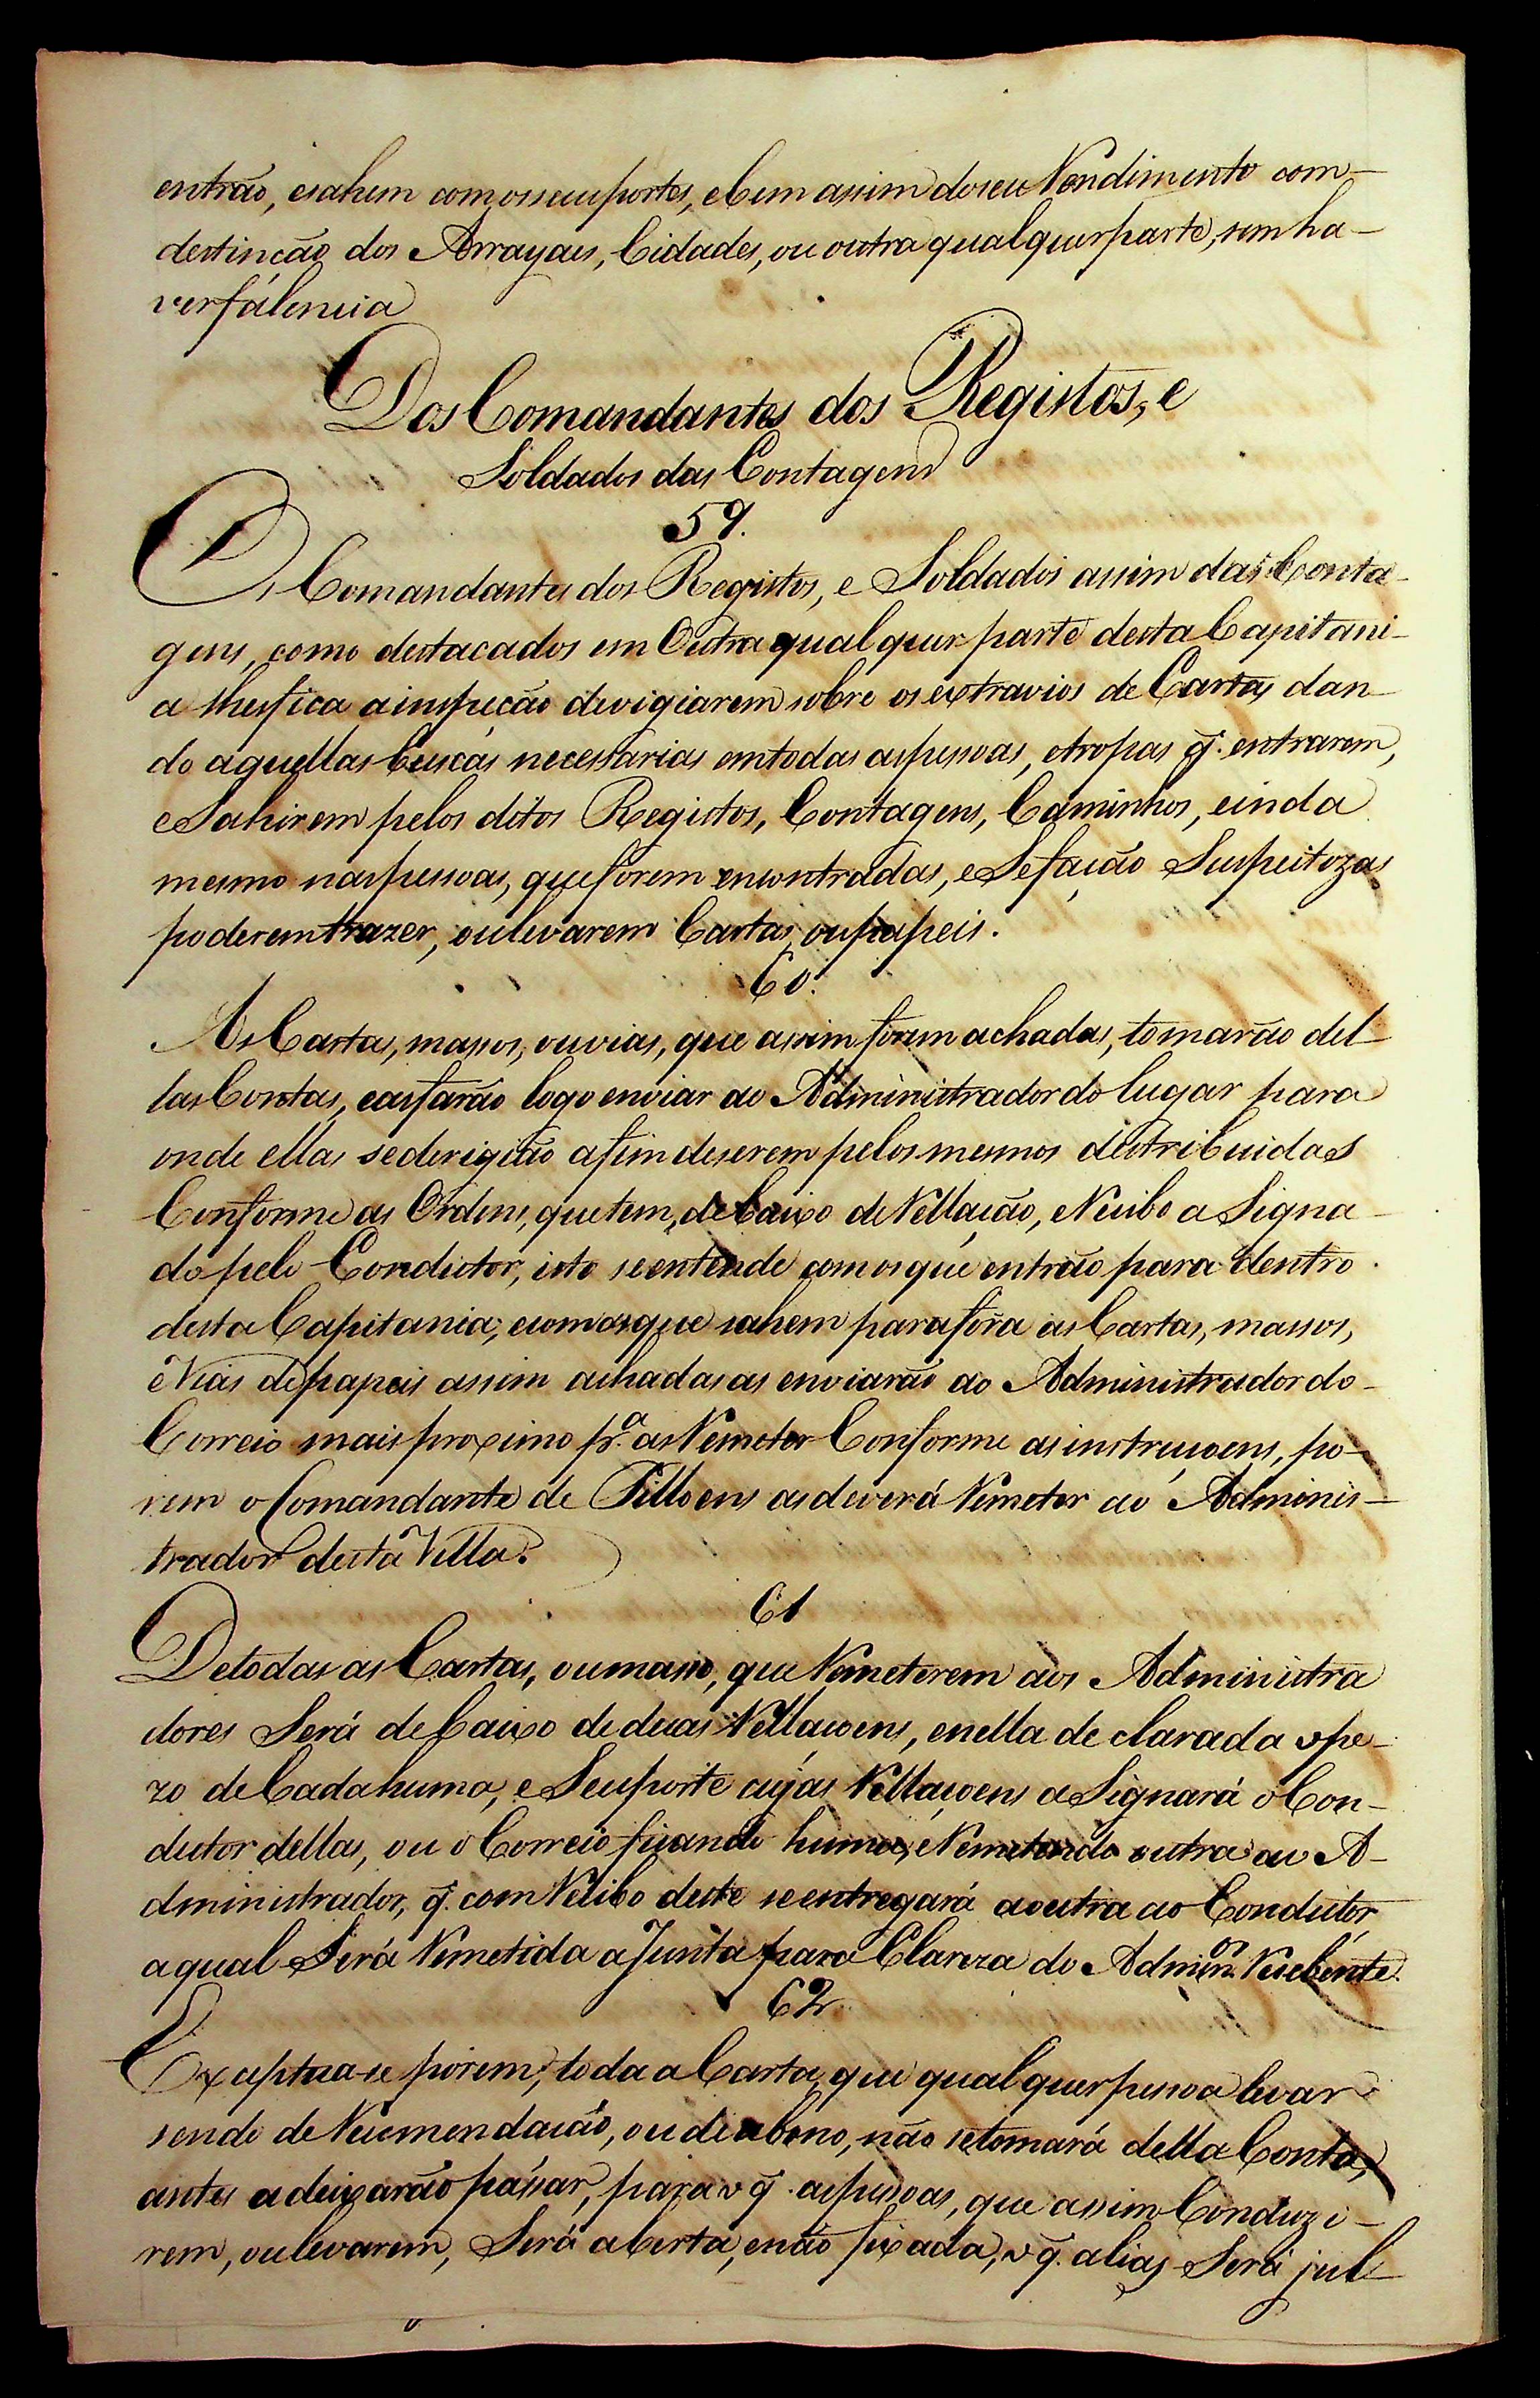 entrão, esahem comosseusportes, ebem assim doseu Rendimento com-
destincão dos Arrayaes, Cidades, ou outra qualquer parte, sem ha-
ver fálencia
Dos Comandantes dos Registos, e
Soldados das Contagens
59.
Os Comandantes dos Registos, e Soldados assim das Conta-
gens, como destacados em Outra qual quer parte desta Capitani-
a lhesfica ainspecão devigiarem sobre os extravios de Cartas dan-
do aquellas buscas necessarias emtodas aspessoas, etropas q̃. entrarem,
e Sahirem pelos ditos Registos, Contagens, Caminhos, einda
mesmo naspessoas, queforem encontradas, e Sefação Suspeitozas
poderemtrazer, oulevarem Cartas, oupapeis.
60.
As Cartas, massos, ouvias, que assim forem achadas, tomarão del-
las Contas, easfarão logo enviar ao Administrador do lugar para
onde ellas sederigião afim deserem pelos mesmos destribuidas
Conforme as Ordens, quetem, debaixo de Rellação, Recibo aSigna-
do pelo Conductor, isto seentende comosque entrão para dentro
desta Capitania, ecomasque sahem parafóra as Cartas, massos,
e Vias de papeis assim achadas as enviarão ao Administrador do-
Correio mais proximo pª. as Remeter Conforme asinstruçoens, po-
rem o Comandante de Pilloens as deverá Remeter ao Adminis-
trador desta Villa.
61
Detodas as Cartas, oumasso, que Remeterem aos Administra
dores Será debaixo deduas Rellaçoens, enella declarada ope-
zo de Cada huma, e Seuporte cujas Rellaçoens aSignará o Con-
dutor dellas, ou o Correio ficando huma, e Remetendo outra ao A-
dministrador, q̃. com Recibo deste seentregará aoutra ao Condutor
aqual Será Remetida aJunta para Clareza do Admin.ᵒʳ Recebente.
62
Exceptua-se porem, toda a Carta, que qual quer pessoa levar
sendo de Recomendação, ou de abono, não setomará della Conta,
antes adeixarão passar, para o q̃. aspessoas, que assim Conduzi-
rem, oulevarem, Será aberta, enão fixada, o q̃. alias Será jul-